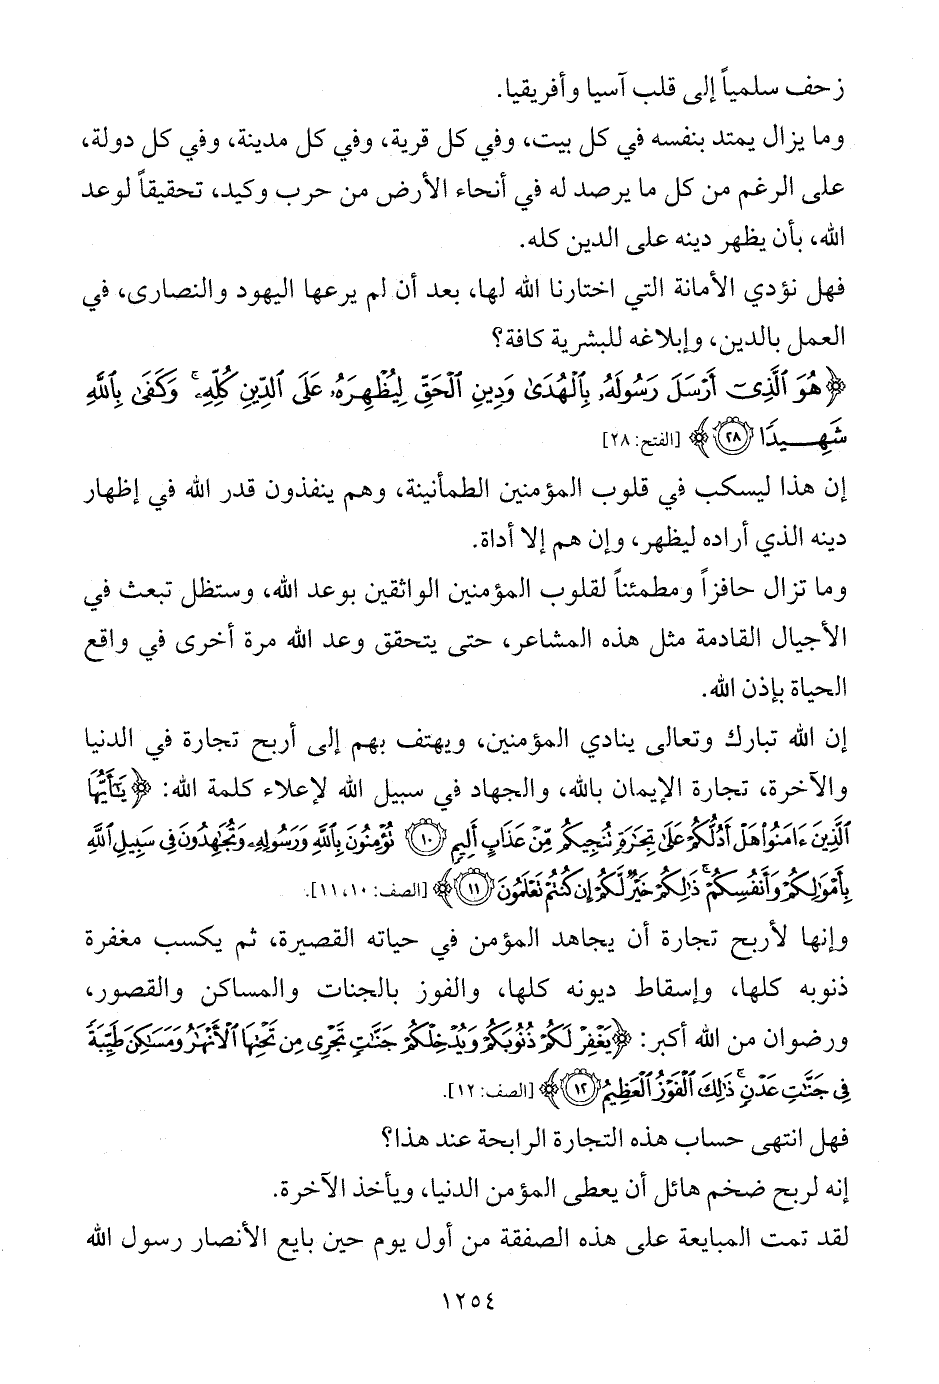 زحف سلمياً إلى قلب آسيا وأفريقيا.
وما يزال يمتد بنفسه في كل بيت، وفي كل قرية، وفي كل مدينة، وفي كل دولة،
على الرغم من كل ما يرصد له في أنحاء الأرض من حرب وكيد، تحقيقاً لوعد
الله، بأن يظهر دينه على الدين كله.
فهل نؤدي الأمانة التي اختارنا الله لها، بعد أن لم يرعها اليهود والنصارى، في
العمل بالدين، وإبلاغه للبشرية كافة؟
﴿هُوَ ٱلَّذِىٓ أَرْسَلَ رَسُولَهُۥ بِٱلْهُدَىٰ وَدِينِ ٱلْحَقِّ لِيُظْهِرَهُۥ عَلَى ٱلدِّينِ كُلِّهِۦ ۚ وَكَفَىٰ بِٱللَّهِ
شَهِيدًا ٢٨﴾ [الفتح: ٢٨]
إن هذا ليسكب في قلوب المؤمنين الطمأنينة، وهم ينفذون قدر الله في إظهار
دينه الذي أراده ليظهر، وإن هم إلا أداة.
وما تزال حافزاً ومطمئناً لقلوب المؤمنين الواثقين بوعد الله، وستظل تبعث في
الأجيال القادمة مثل هذه المشاعر، حتى يتحقق وعد الله مرة أخرى في واقع
الحياة بإذن الله.
إن الله تبارك وتعالى ينادي المؤمنين، ويهتف بهم إلى أربح تجارة في الدنيا
والآخرة، تجارة الإيمان بالله، والجهاد في سبيل الله لإعلاء كلمة الله: ﴿يَٰٓأَيُّهَا
ٱلَّذِينَ ءَامَنُوا۟ هَلْ أَدُلُّكُمْ عَلَىٰ تِجَٰرَةٍ تُنجِيكُم مِّنْ عَذَابٍ أَلِيمٍ ١٠ تُؤْمِنُونَ بِٱللَّهِ وَرَسُولِهِۦ وَتُجَٰهِدُونَ فِى سَبِيلِ ٱللَّهِ
بِأَمْوَٰلِكُمْ وَأَنفُسِكُمْ ۚ ذَٰلِكُمْ خَيْرٌ لَّكُمْ إِن كُنتُمْ تَعْلَمُونَ ١١﴾ [الصف: ١٠، ١١].
وإنها لأربح تجارة أن يجاهد المؤمن في حياته القصيرة، ثم يكسب مغفرة
ذنوبه كلها، وإسقاط ديونه كلها، والفوز بالجنات والمساكن والقصور،
ورضوان من الله أكبر: ﴿يَغْفِرْ لَكُمْ ذُنُوبَكُمْ وَيُدْخِلْكُمْ جَنَّٰتٍ تَجْرِى مِن تَحْتِهَا ٱلْأَنْهَٰرُ وَمَسَٰكِنَ طَيِّبَةً
فِى جَنَّٰتِ عَدْنٍ ۚ ذَٰلِكَ ٱلْفَوْزُ ٱلْعَظِيمُ ١٢﴾ [الصف: ١٢].
فهل انتهى حساب هذه التجارة الرابحة عند هذا؟
إنه لربح ضخم هائل أن يعطى المؤمن الدنيا، ويأخذ الآخرة.
لقد تمت المبايعة على هذه الصفقة من أول يوم حين بايع الأنصار رسول الله
١٢٥٤